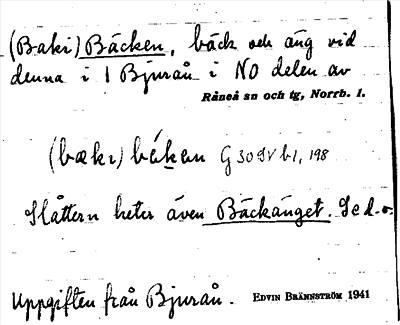 (Baki) Bäcken, bäck och äng vid
denna i 1 Bjuraån i NO delen av
Råneå sn och tg, Norrb. l.
(bækı) bäken G 30 SV b1, 198
Slåttern heter även Bäckänget. Se d.o.
Uppgiften från Bjuraån. EDVIN BRÄNNSTRÖM 1941